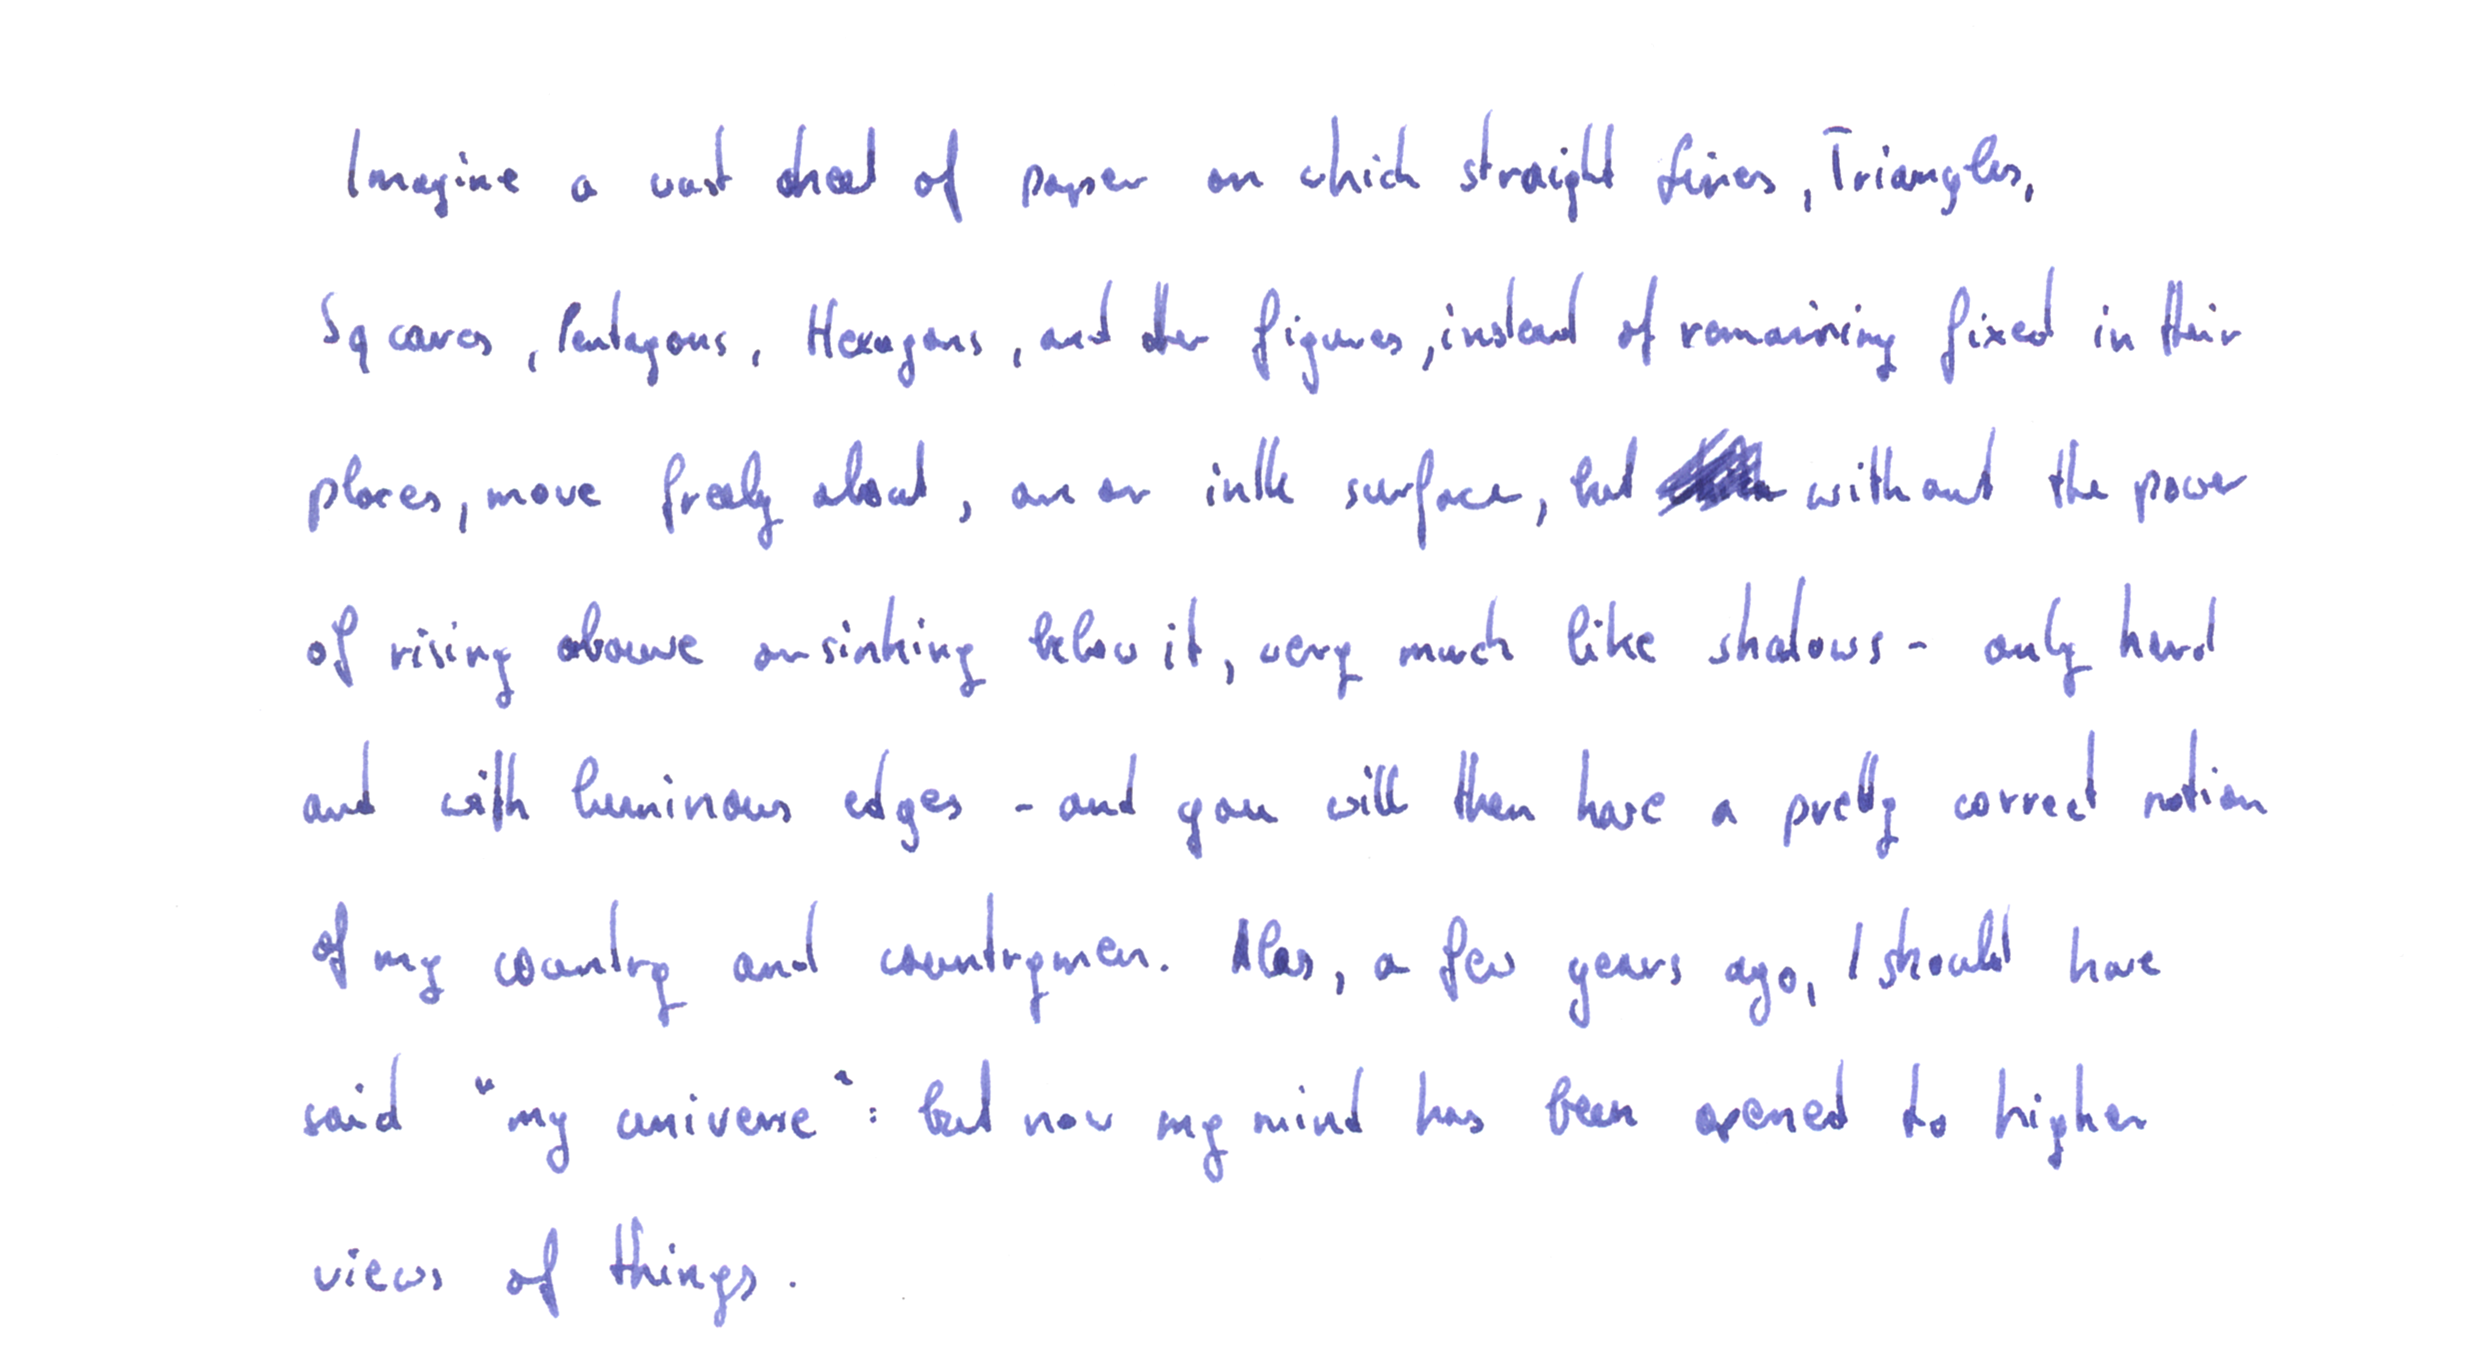 Imagine a vast sheet of paper on which straight lines, Triangles,
Squares, Pentagons, Hexagons, and other figures, instead of remaining fixed in their
places, move freely about, on or in the surface, but without the power
of rising above or sinking below it, very much like shadows - only hard
and with luminous edges - and you will then have a pretty correct notion
of my country and countrymen. Alas, a few years ago, I should have
said "my universe": but now my mind has been opened to higher
views of things.